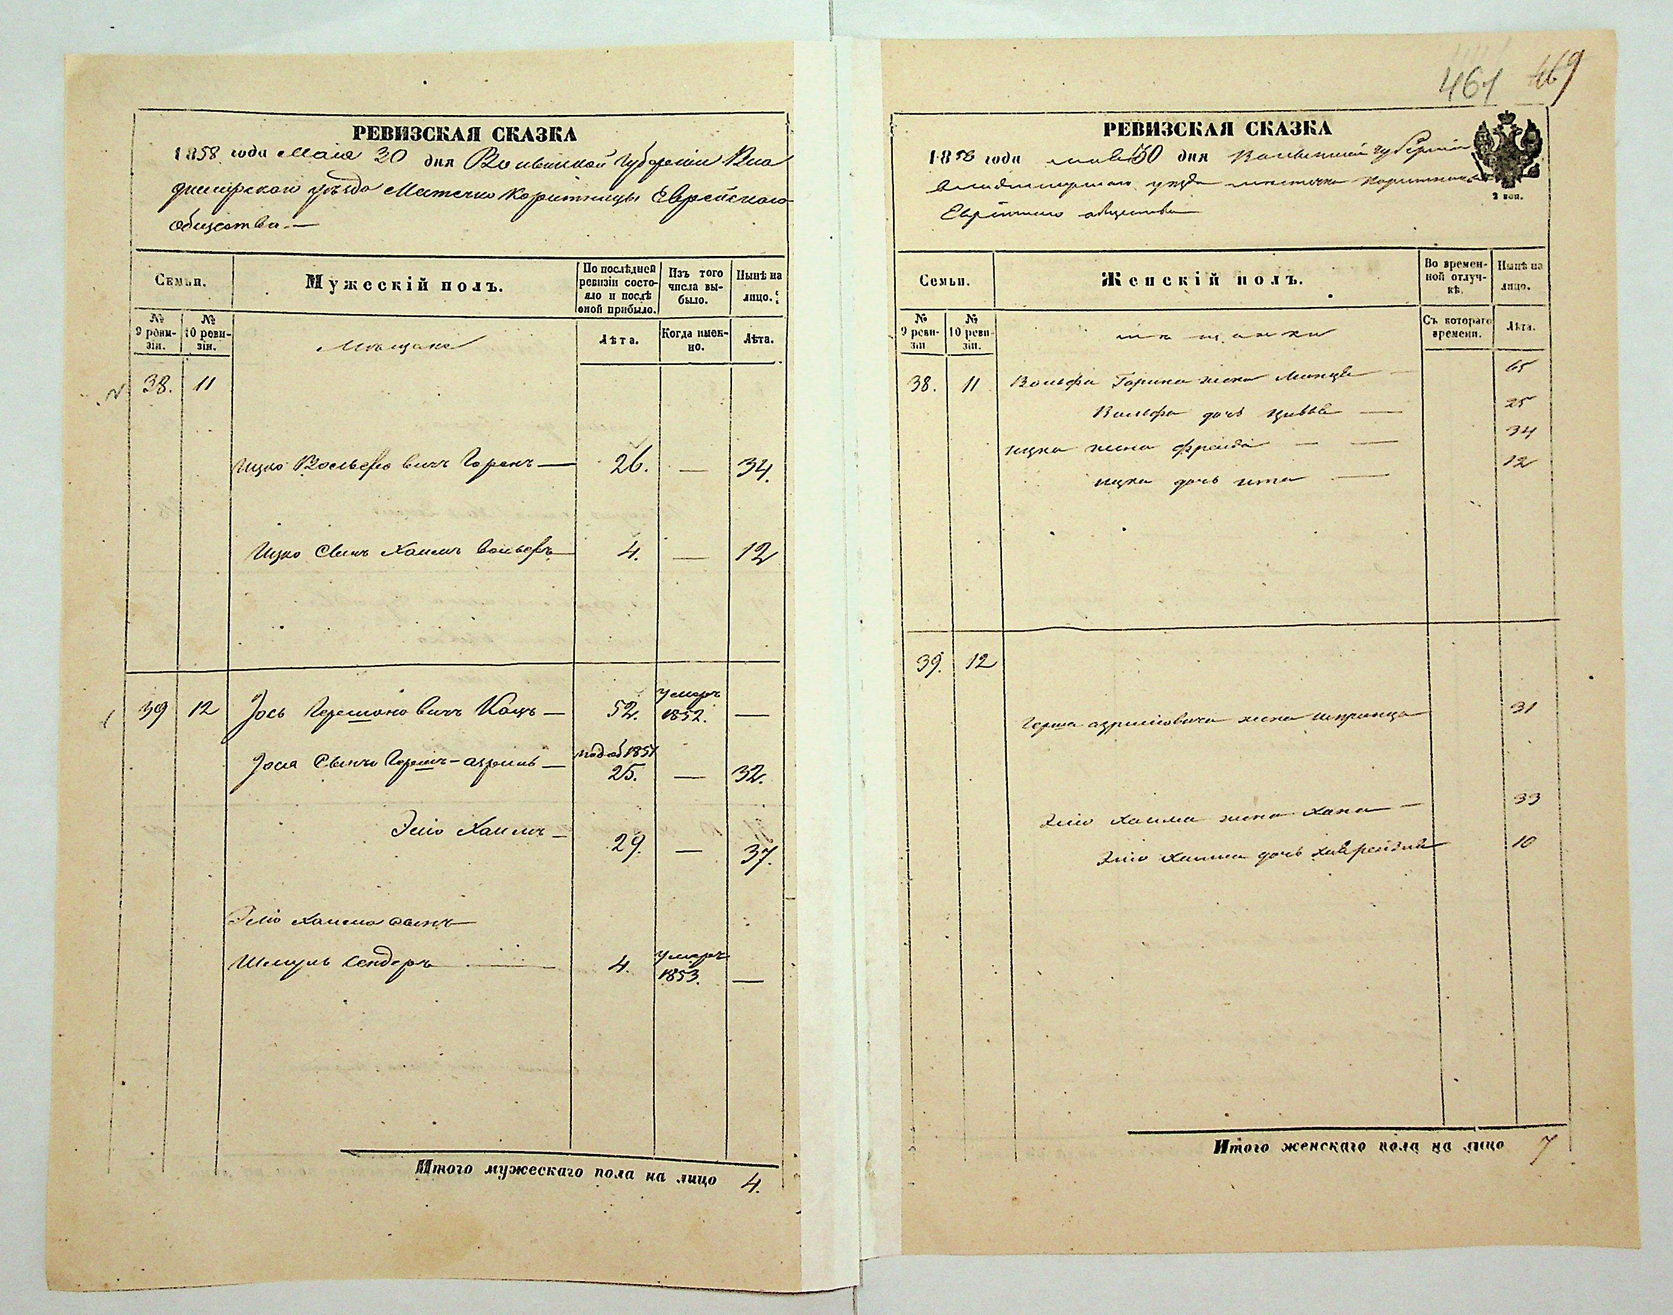 461 469
РЕВИЗСКАЯ СКАЗКА
1858 года Мая 30 дня Волынской Губернии Вла
димирского уѣзда Мѣстечко Корытницы Еврейского
общества.—
Семьи.
Мужескій полъ.
По послѣдней ревизіи состояло и послѣ оной прибыло.
Изъ того числа выбыло.
Нынѣ на лицо.
№ 9 ревизіи.
№ 10 ревизіи.
Мѣщане
Лѣта.
Когда именно.
Лѣта.
38. 11
Ицко Вольфовичъ Горенъ — 26. — 34.
Ицко Сынъ Хаимъ Вольфъ 4. — 12
39 12 Іось Гершоновичъ Кацъ — 52. умеръ 1852. —
Іося Сынъ Гершъ — 25. — 32.
Элю Хаимъ — 29. — 37.
Элю Хаима сынъ
Шмуль Сендеръ 4. умеръ 1853. —
Итого мужескаго пола на лицо 4.
РЕВИЗСКАЯ СКАЗКА
1858 года мая 30 дня Волынской Губерніи
Владимирского уезда местечка Корытницы
Еврейского общества
2 коп.
Семьи.
Женскій полъ.
Во временной отлучкѣ.
Нынѣ на лицо.
№ 9 ревизіи
№ 10 ревизіи.
мѣщанки
Съ котораго времени.
Лѣта.
38. 11 Вольфа Горина жена — 65
Вольфа дочь — 25
Ицка жена Фрейда — — 34
Ицка дочь Ита — 12
39. 12
Герша жена Шпринца 31
Элю Хаима жена Хана — 33
Элю Хаима дочь 10
Итого женскаго пола на лицо 7